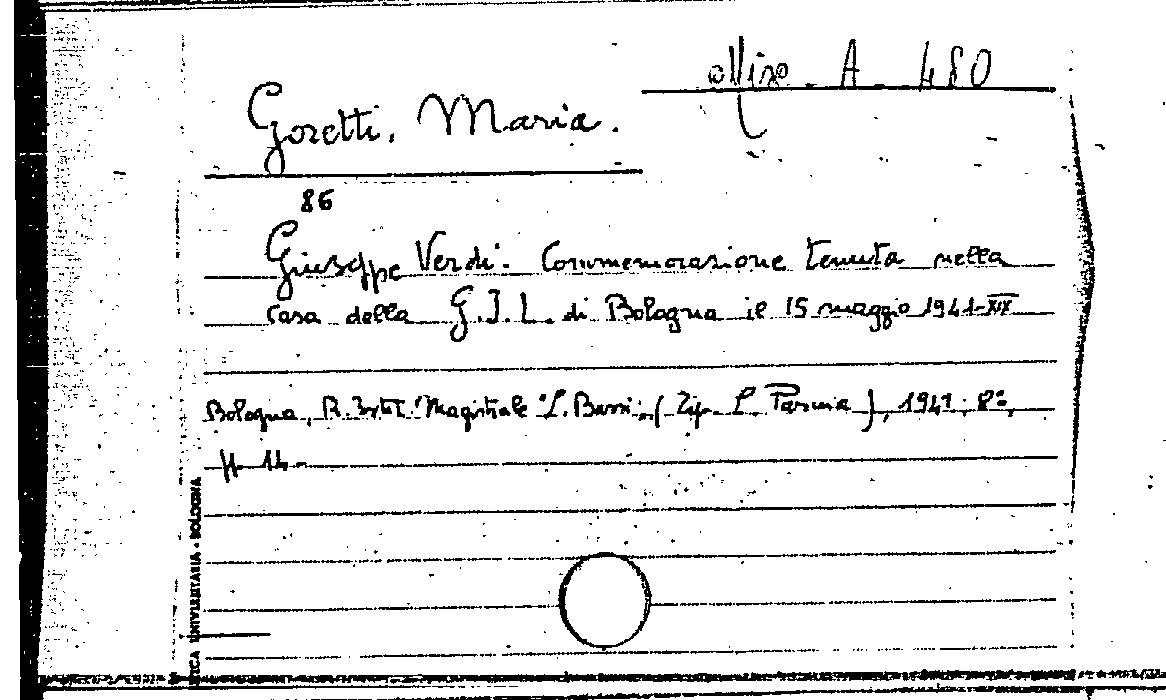 A 480
Goretti, Maria.
86
Giuseppe Verdi. Commemorazione tenuta nella
casa della G.I.L. di Bologna il 15 maggio 1941-XIX
Bologna, R. Istit. Magistrale "L. Bassi", (Tip. L. Parma), 1941, 8º,
pp. 14.
UNIVERSITARIA - BOLOGNA